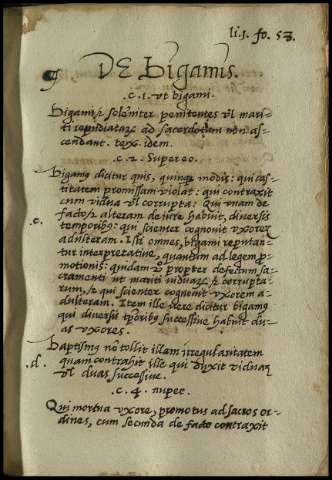 li.1. fo. 53.
DE Bigamis.
.c. 1. vt bigami.
Bigami & solēniter penitentes vl mari-
ti repudiatarz ad sacerdotium non as-
cendant. tex. idem.
.c. 2. Super eo.
Bigamꝰ dicitur quis, quinqz modis: qui cas-
titatem promissam violat: qui contraxit
cum vidua vl corrupta: Qui vnam de
facto, & alteram de iure habuit, diversis
temporibꝰ: qui scienter cognouit vxorē
.c. adulteram. Isti omnes, bigami reputan-
tur interpretatiue, quantum ad legem p̄-
motionis: quidam propter defectum sa-
cramenti ut mariti viduarz & corrupta-
rum, & qui scienter cognouit vxorem a-
dulteram. Item ille vere dicitur bigamꝰ
qui diuersis tp̄oribꝰ successiue habuit du-
as vxores.
Baptismꝰ nō tollit illam irregularitatem
.d. quam contrahit ille qui duxit viduam
vl duas successiue.
.c. 4. nuper.
Qui mortua vxore, promotus ad sacros or-
dines, cum secunda de facto contraxit